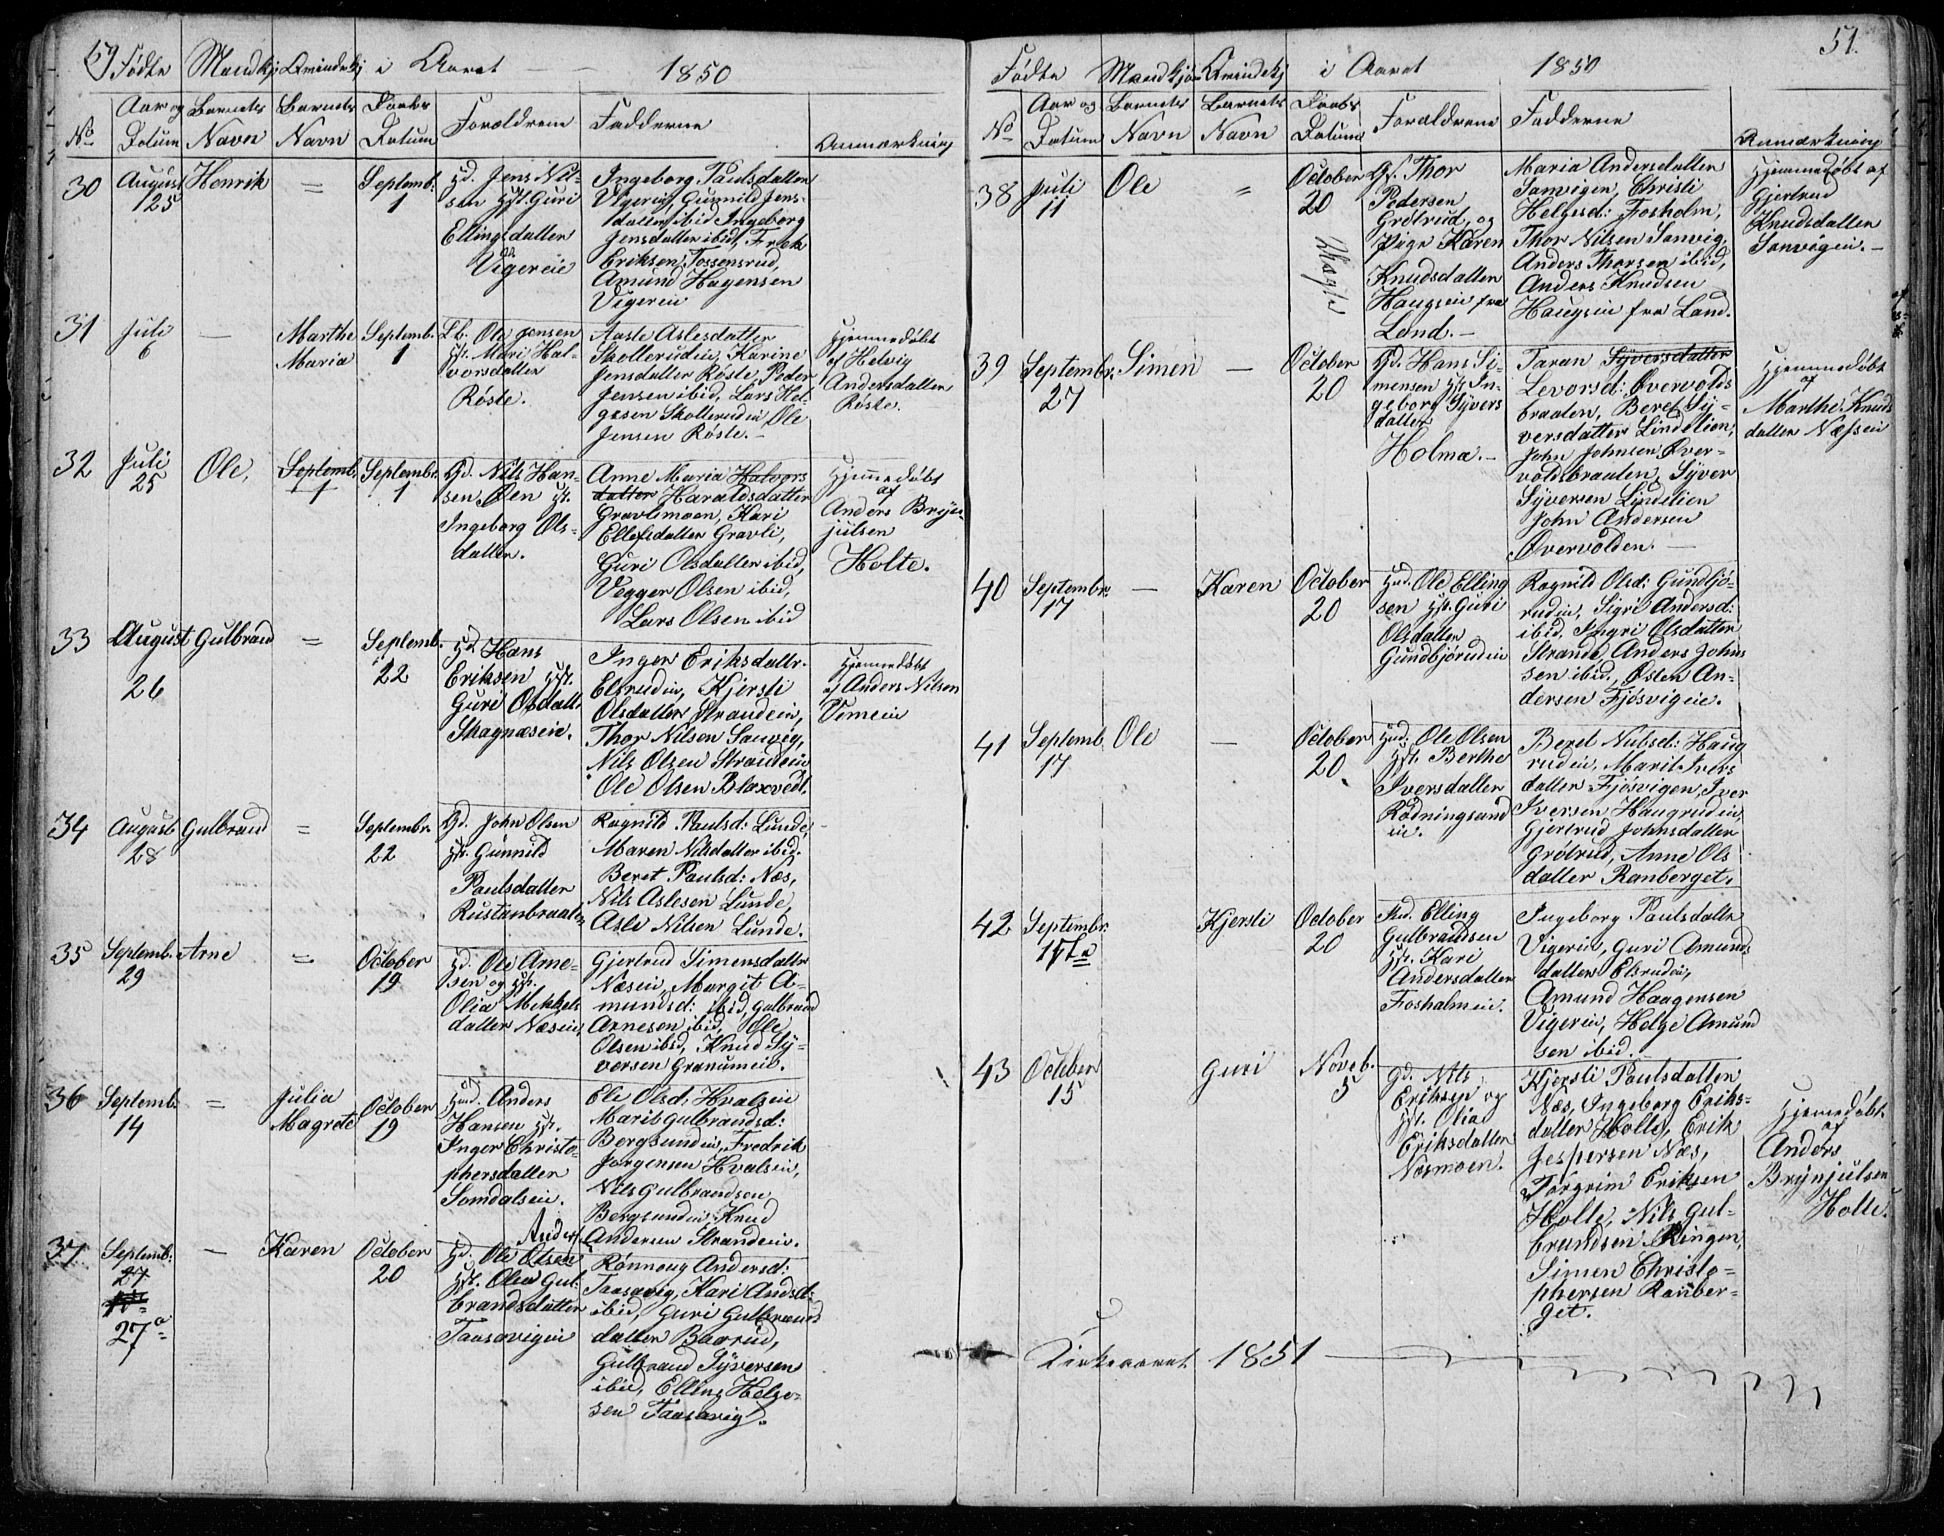 Födte Mandkj Qvindekj i Aaret 1850
No
Aar og Datum
Barnets Navn
Barnets Navn
Daabs Datum
Foræeldrene
Fadderne
Anmærkning
30
August 25
Henrik
=
Septemb. 1
Hd. Jens Nil-
sen Hst. Guri
Ellingsdatter
Vigereie
Ingeborg Paulsdatter
Vigerie, Gunnild Jens-
datter ibid Ingeborg
Jensdatter ibid,
Eriksen Fossensrud,
Amund Hagensen
Vigerein
31
Juli 6
—
Marthe Maria
Septemb. 1
Ole Jensen
Hst. Mari Hal-
vorsdatter
Röste.
Aasle Aslesdatter
Skollerudein, Karine
Jensdatter Röste, Peder
Jensen ibid, Lars Hel-
gesen Skollerudein Ole
Jensen Röste.-
Hjemmedöbt
af Helvig
Andersdatter
Röste.
32
Juli 25
Ole,
Septemb. 1
Septembr. 1
Gd. Nils Han-
sen Öen Hst.
Ingeborg Ols-
datter.
Anne Maria Halvors
datter Haraldsdatter
Gravlimoen, Kari
Ellefsdatter Gravli,
Guri Olsdatter ibid,
Vegger Olsen ibid,
Lars Olsen ibid
Hjemmedöbt
af
Anders Brynjulsen
Holte.
33
August 26
Gulbrand
=
Septemb. 22
Hd. Hans
Eriksen Hst.
Guri Olsdatt.
Skagnæseie.
Inger Eriksdattr.
Elsrudein, Kjersti
Olsdatter Strandein,
Thor Nilsen Sanvig,
Nils Olsen Strandein
Ole Olsen Blaxvedt.
Hjemmedöbt
af Anders Nilsen
34
August 28
Gulbrand
=
Septembr. 22
Gd. John Olsen
Hst. Gunnild
Paulsdatter
Rustanbraaten
Ragnild Paulsd: Lunde,
Maren Nilsdatter ibid.
Beret Paulsd: Næs,
Nils Aslesen Lunde,
Asle Nilsen Lunde.
35
Septemb. 29
Arne
=
October 19
Hd. Ole Arne-
sen og Hst.
Olia Mikkels
datter Næseie,
Gjertrud Simensdatter
Næsein, Margit A-
mundsd: ibid, Gulbrand
Arnesen ibid, Ole
Olsen ibid, Knud Sy-
versen Granumeie.
36
Septemb. 14
=
Julia Magrete
October 19
Hud. Anders
Hansen Hst.
Inger Christo-
phersdatter
Somdalseie.
Eli Olsd, Hvalseie
Marit Gulbrandsd:
Bergsundein, Fredrik
Jörgensen Hvalsein,
Nils Gulbrandsen
Bergsundein Knud
Andersen Strandeie.
37
Septemb. 27 27de
—
Karen
October 20
Anders
Hd. Ole Olsen
Hst. Olea Gul-
brandsdatter
Taasavigein
Rönnoug Andersd:
Taasavig, Kari Andsd:
ibid, Guri Gulbrands
datter Baarud,
Gulbrand Syversen
ibid, Elling Helge-
sen Taasavig.
51.
Födte Mandkjön Qvindekj i Aaret 1850
No
Aar og Datum
Barnets Navn
Barnets Navn
Daabs Datum
Forældrene
Fadderne
Anmærkning
38
Juli 11
Ole
"
October 20
Gf. Thor
Pedersen
Grötrud, og
Pige Karen
Knudsdatter
Haugseie fra
Land.-
Maria Andersdatter
Sanvigen, Christi
Helgesd: Fosholm,
Thor Nilsen Sanvig,
Anders Thorsen ibid,
Anders Knudsen
Haugseie fra Land.
Hjemmedöbt af
Gjertrud
Knudsdatter
Sanvigein.-
39
Septembr. 27
Simen
—
October 20
Gd. Hans Si-
mensen Hst. In-
geborg Syvers
datter
Holma.-
Taran Syversdatter
Levorsd: Övervolds
braaten, Beret Sy-
versdatter Lindelien,
John Johnsen Över-
voldsbraaten, Syver
Syversen Lindelien
John Andersen
Övervolden.-
Hjemmedöbt
af
Marthe Knuds
datter Næssein
40
Septembr. 17
—
Karen
October 20
Hud. Ole Elling
sen Hst. Guri
Olsdatter
Gundbjörudein
Ragnild Olsd: Gundbjö-
rudein, Sigri Andersd:
ibid. Ingri Olsdatter
Strande Anders Johns
sen ibid., Östen An-
dersen Fjösvigeie.
41
Septemb. 17
Ole
—
October 20
Hud. Ole Olsen
Hst. Berthe
Iversdatter
Rödningsand
eie.
Beret Nubsd: Haug
rudein, Marit Ivers
datter Fjösvigen, Iver
Iversen Haugrudein,
Gjertrud Johnsdatter
Grötrud, Anne Ols
datter Ranberget.
42
Septembr.
Kjersti
October 20
Hud. Elling
Gulbrandsen
Hst. Kari
Andersdatter
Fosholmeie.
Ingeborg Paulsdattr
Vigerein, Guri Amunds
datter Elsrudein,
Amund Haagensen
Vigerein, Helge Amund
sen ibid.
43
October 15
Guri
Noveb. 5
Gd. Nils
Eriksen og
Hst. Olia
Eriksdatter
Næsmoen.
Kjersti Paulsdatter
Næs, Ingeborg Eriks-
datter Holte, Erik
Jespersen Næs,
Torgrim Eriksen
Holte, Nils Gul-
brandsen Ringen,
Simen Christo-
phersen Ranber-
get.
Hjemmedöbt
af
Anders
Brynjulsen
Holte.
Kirkeaaret 1851